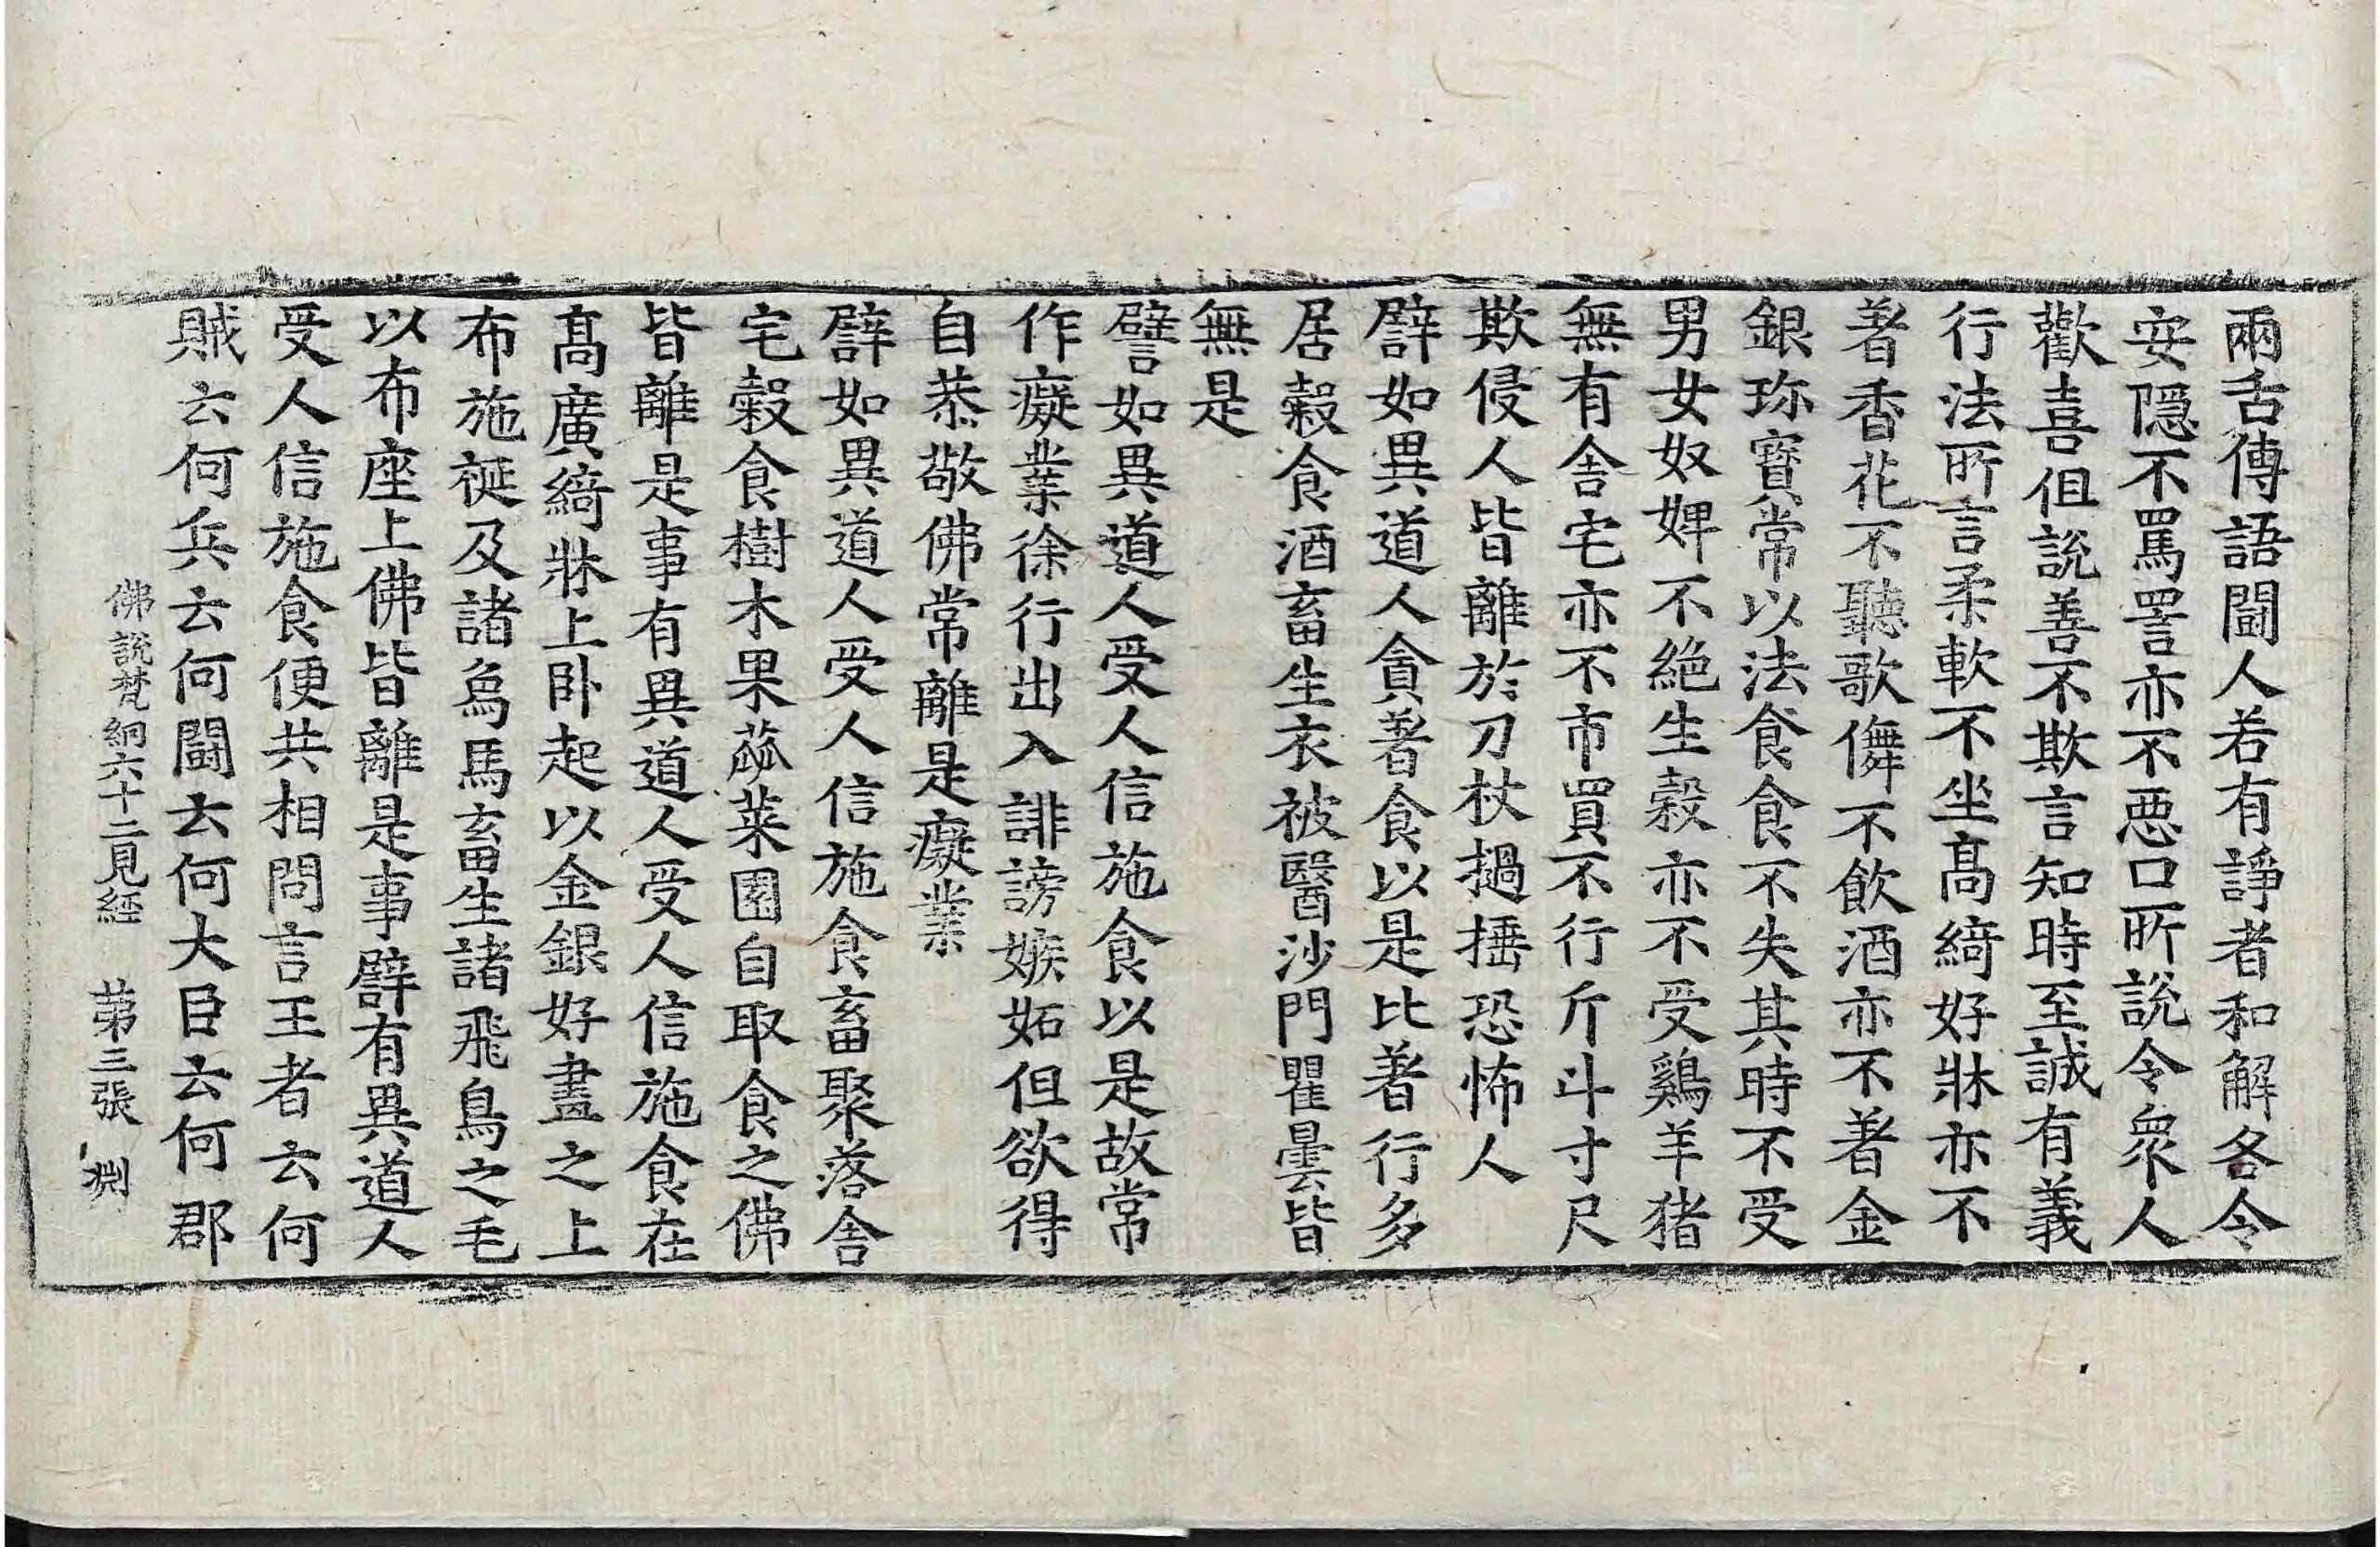 兩舌傳語鬪人若有諍者和解各令
安隱不罵詈亦不惡口所說令衆人
歡喜但說善不欺言知時至誠有義
行法所言柔軟不坐高綺好牀亦不
著香花不聽歌儛不飮酒亦不著金
銀珎寶常以法食食不失其時不受
男女奴婢不絕生穀亦不受鷄羊猪
無有舍宅亦不市買不行斤斗寸尺
欺侵人皆離於刀杖撾捶恐怖人
譬如異道人貪著食以是比著行多
居穀食酒畜生衣被醫沙門瞿曇皆
無是
譬如異道人受人信施食以是故常
作癡業徐行出入誹謗嫉妬但欲得
自恭敬佛常離是癡業
譬如異道人受人信施食畜聚落舍
宅穀食樹木果蓏菜園自取食之佛
皆離是事有異道人受人信施食在
髙廣綺牀上臥起以金銀好畫之上
布施綖及諸爲馬畜生諸飛鳥之毛
以布座上佛皆離是事譬有異道人
受人信施食便共相問言王者云何
賊云何兵云何鬪云何大臣云何郡
佛說梵網六十二見經 第三張 渊